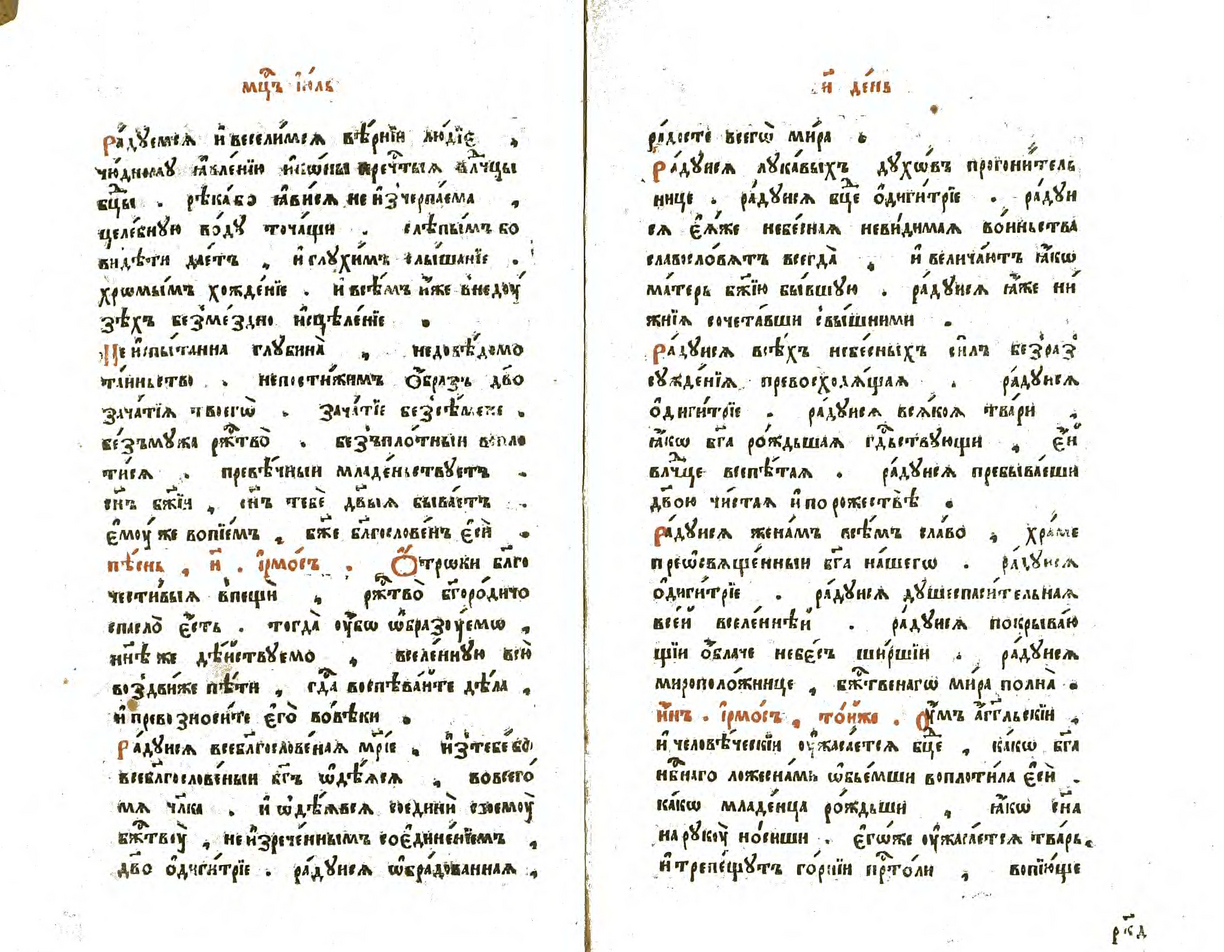 мцⷭ҇ъ і҆ю́ль
Ра́дуемсѧ и҆ веселимсѧ вѣ́рнїи лю́дїе ,
чю́дному ꙗ҆влє́нїю и҆кѡ́ны пречⷭ҇тыѧ влⷣчцы
бцⷣы . рѣка́ бо ꙗ҆ви́сѧ не и҆зчерпа́ема ,
целе́бную во́ду точа́щи . слѣпы́мъ бо
ви́дѣти дае́тъ , и҆ глухи́мъ слы́шанїе .
хромы́мъ хожде́нїе . и҆ всѣ́мъ и҆́же в недоу́
зѣхъ безме́здно и҆сцѣле́нїе .
Не и҆спы́танна глубина̀ , недовѣ́домо
та́иньство . непостижи́мъ ѻ҆́бразъ дв҃о
зача́тїѧ твоегѡ̀ . зача́тїе безсѣ́мене .
безъ му́жа ржⷭ҇тво̀ . безъ пло́тныи вопло
ти́сѧ . превѣ́чныи младе́ньствуетъ .
сн҃ъ бж҃їи , сн҃ъ тебѐ дв҃ыѧ быва́етъ .
є҆моу́ же вопїе́мъ , бж҃е блгⷭ҇лове́нъ є҆сѝ .
пѣ́снь , и҃ . і҆рмо́съ . Ѻ҆́троки блг҃о
чести́выѧ в пещѝ , ржⷭ҇тво̀ бг҃оро́дичо
спасло̀ є҆́сть . тогда̀ оу҆́бѡ ѡ҆бразоу́емо ,
нн҃ѣ же дѣ́йствуемо , вселе́нную всю̀
воздви́же пѣ́ти , гдⷭ҇а воспѣва́ите дѣ́ла ,
и҆ превозноси́те є҆го̀ во вѣ́ки .
Ра́дуисѧ всеблагослове́наѧ мр҃іе , и҆з тебе́ бо
всеблагослове́ныи бг҃ъ ѡ҆дѣ́ѧсѧ , во всего́
мѧ чл҃ка . и҆ ѡ҆дѣ́ѧвсѧ соединѝ своемоу̀
бжⷭ҇твоу̀ , не и҆зрече́ннымъ соедине́нїемъ ,
дв҃о ѻ҆диги́трїе . ра́дуисѧ ѡ҆бра́дованнаѧ ,
и҃ де́нь
ра́досте всегѡ̀ ми́ра .
Ра́дуисѧ лука́выхъ духѡ́въ прогони́тель
нице . ра́дуисѧ бцⷣе ѻ҆диги́трїе . ра́дуи
сѧ є҆ѧ́же небе́снаѧ неви́димаѧ во́иньства
славосло́вѧтъ всегда̀ , и҆ велича́ютъ ꙗ҆́кѡ
ма́терь бж҃їю бы́вшую . ра́дуисѧ ꙗ҆́же ни́
жнїѧ сочета́вши с вы́шними .
Ра́дуисѧ всѣ́хъ небе́сныхъ си́лъ без раз
сужде́нїѧ превосходѧ́щаѧ . ра́дуисѧ
ѻ҆диги́трїе . ра́дуисѧ всѧ́коѧ тва́ри ,
ꙗ҆́кѡ бг҃а ро́ждьшаѧ гдⷭ҇ьствующи , є҆́и
влⷣчце воспѣ́таѧ . ра́дуисѧ пребыва́еши
дв҃ою чи́стаѧ и҆ по рожествѣ̀ .
Ра́дуисѧ жена́мъ всѣ́мъ сла́во , хра́ме
преѡсвѧще́нныи бг҃а на́шегѡ . ра́дуисѧ
ѻ҆диги́трїе . ра́дуисѧ душеспаси́тельнаѧ
все́й вселе́ннѣй . ра́дуисѧ покрыва́ю
щїи ѻ҆́блаче небе́съ ши́ршїи . ра́дуисѧ
мироположнице , бжⷭ҇твенагѡ ми́ра полна̀ .
и҆нъ . і҆рмо́съ , то́иже . Оу҆́мъ а҆́гг҃льскїи ,
и҆ человѣ́ческїи оу҆жаса́етсѧ бцⷣе , ка́кѡ бг҃а
нбⷭ҇наго ложесна́мь ѡ҆бье́мши воплоти́ла є҆сѝ .
ка́кѡ младе́нца ро́ждьши , ꙗ҆́кѡ сн҃а
на рукоу̀ но́сиши . є҆гѡ́же оу҆жаса́етсѧ тва́рь ,
и҆ трепе́щутъ го́рнїи прⷭ҇то́ли , вопїю́ще
рк҃д